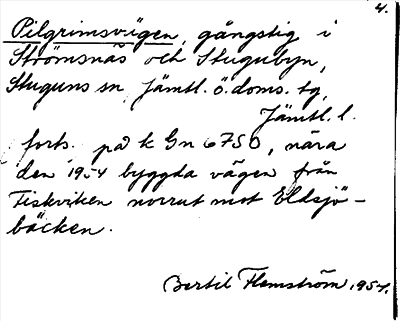 4.
Pilgrimsvägen, gångstig i
Strömsnäs och Stugubyn,
Stuguns sn, Jämtl. ö. doms. tg,
Jämtl. l.
forts. på k Gn 6750, nära
den 1954 byggda vägen från
Fiskviken norrut mot Eldsjö-
bäcken.
Bertil Flemström, 1954.